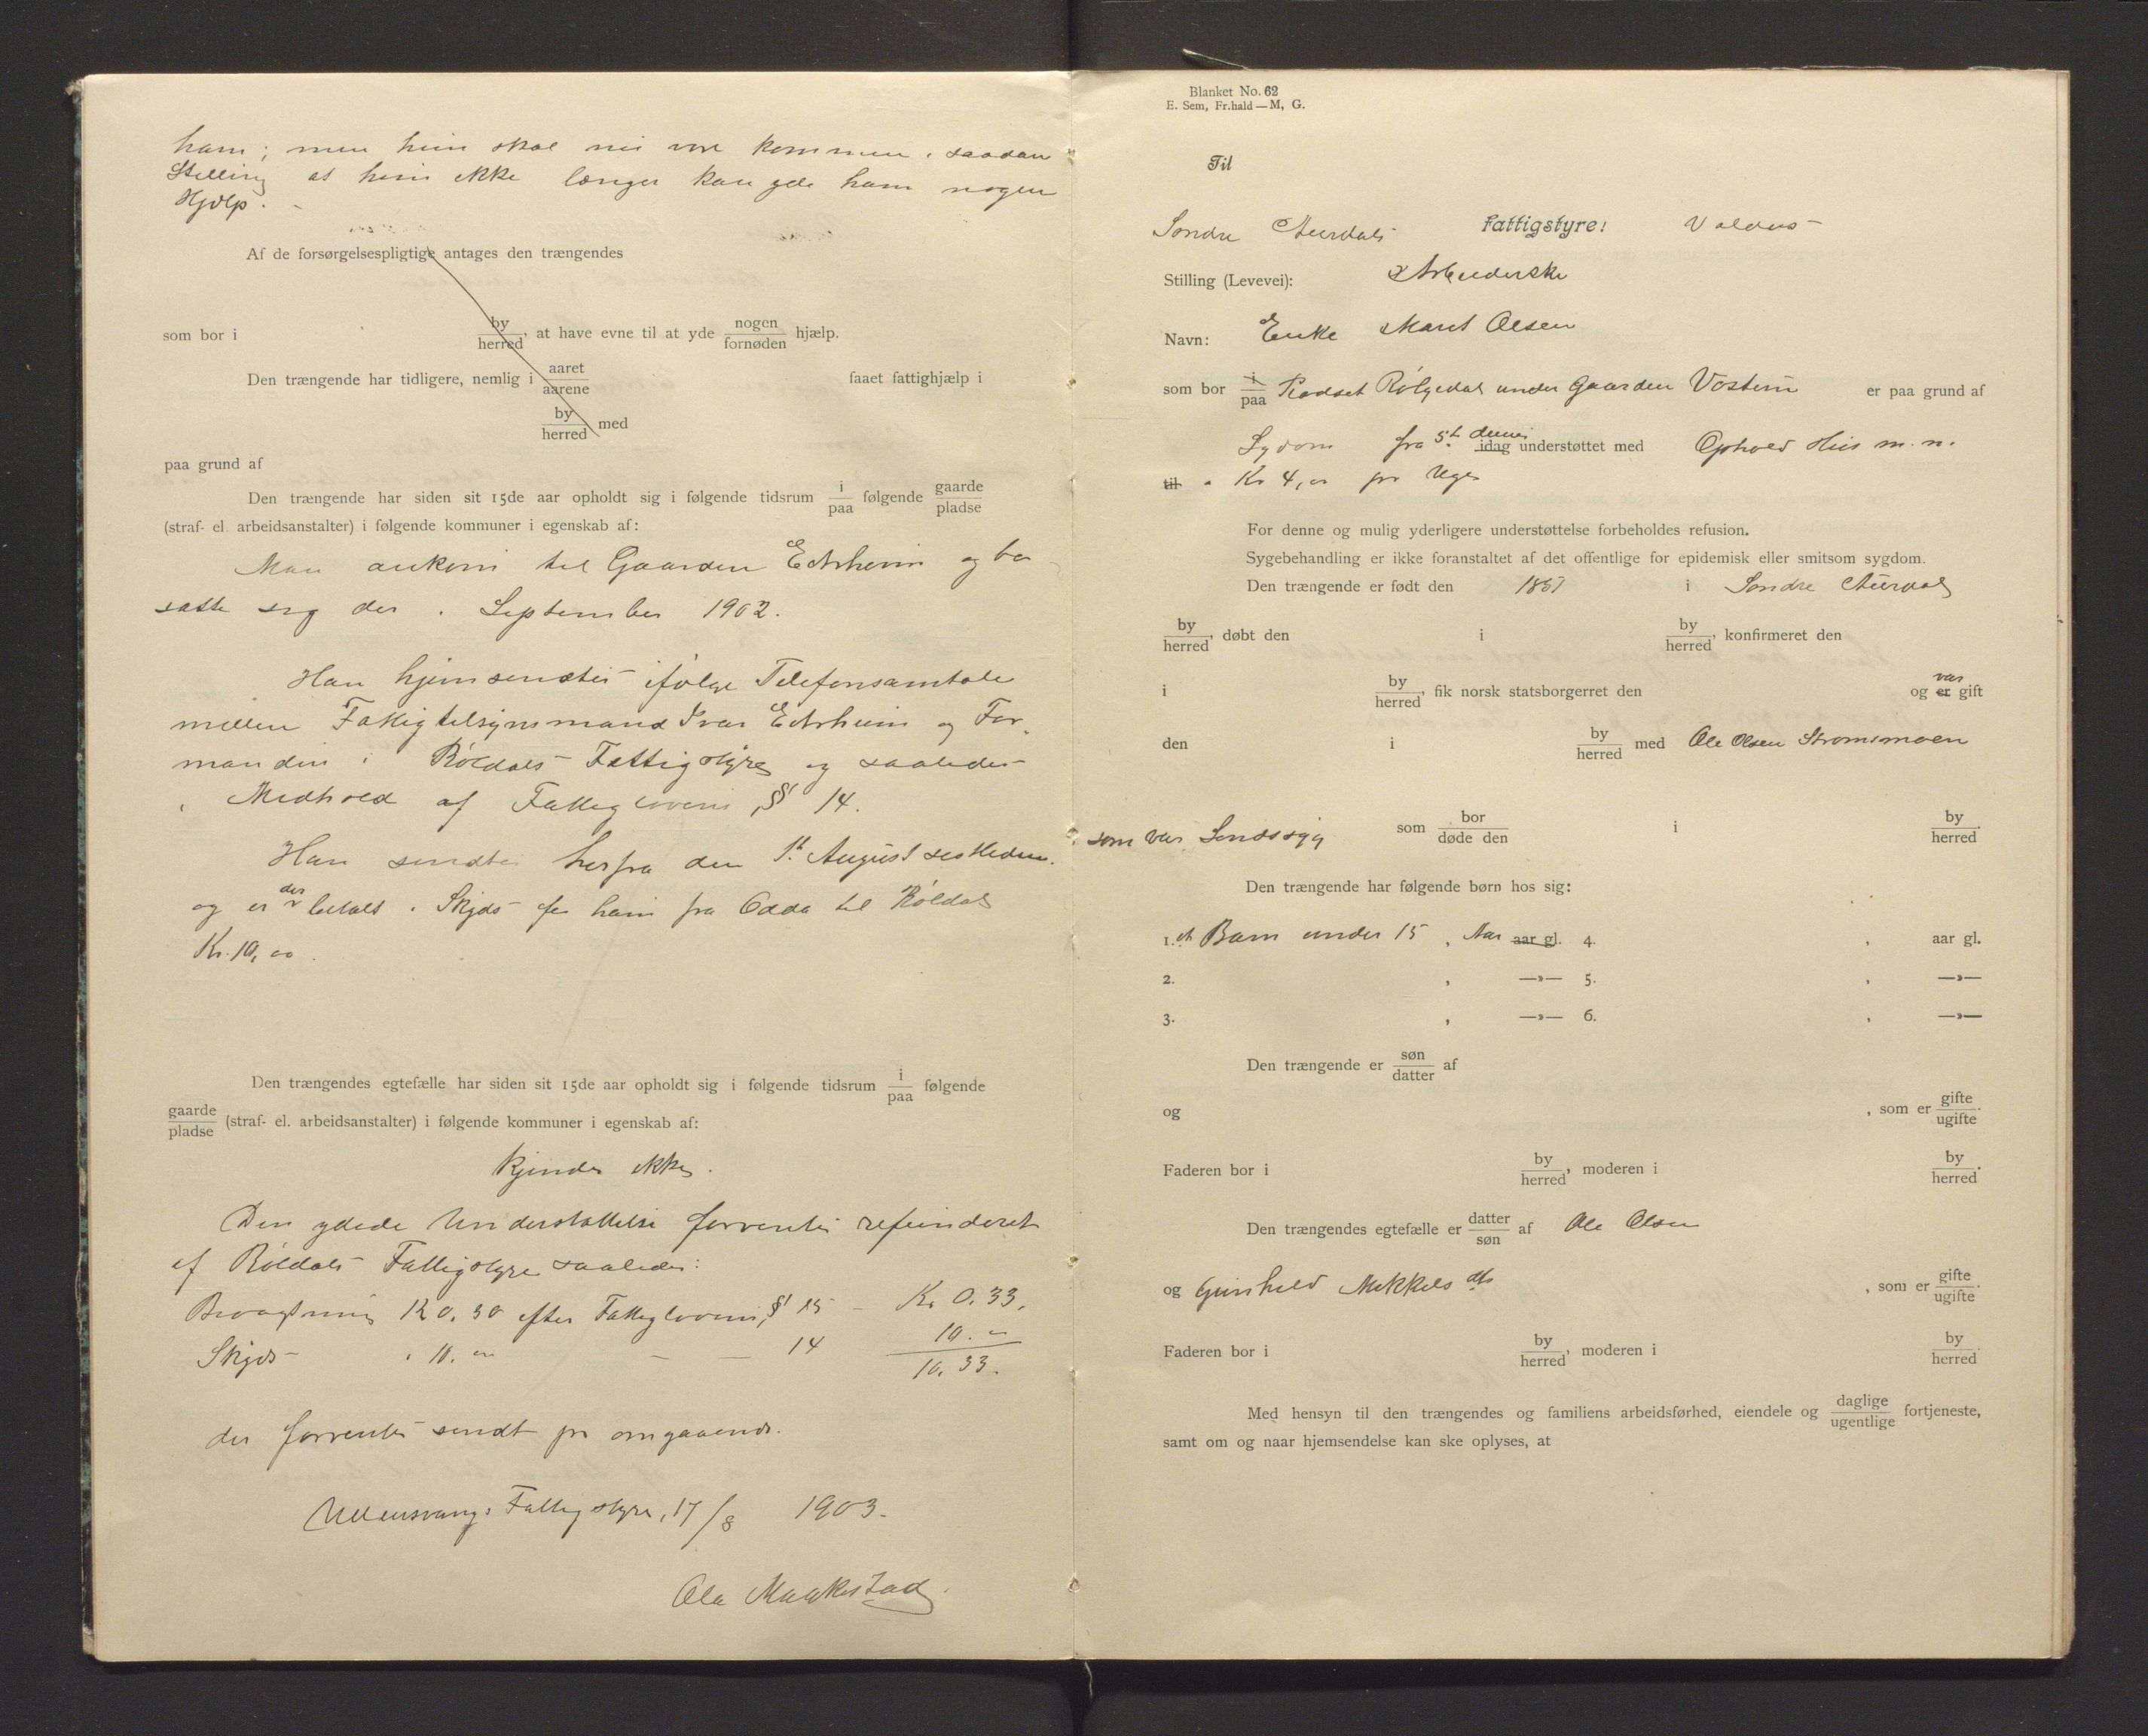 ham; men hun skal nu være kommen i saadan
Stilling at hun ikke længer kan yde ham nogen
Hjælp. -
Af de forsørgelsespligtige antages den trængendes
som bor i by/herred, at have evne til at yde nogen/fornøden hjælp.
Den trængende har tidligere, nemlig i aaret/aarene faaet fattighjælp i
by/herred med
paa grund af
Den trængende har siden sit 15de aar opholdt sig i følgende tidsrum i/paa følgende gaarde/pladse
(straf- el. arbeidsanstalter) i følgende kommuner i egenskab af:
Man ankom til Gaarden Eitrheim og bo
satte sig der i September 1902.
Han hjemsendtes ifølge Telefonsamtale
mellem Fattigtilsynsmand Ivar Eitrheim og For-
manden i Røldals Fattigstyre og saaledes
i Medhold af Fattiglovens § 14.
Han sendtes herfra den 1ste August sidstleden
og er der betalt i Skyds for ham fra Odda til Røldal
Kr. 10,00.
Den trængendes egtefælle har siden sit 15de aar opholdt sig i følgende tidsrum i/paa følgende
gaarde/pladse (straf- el. arbeidsanstalter) i følgende kommuner i egenskab af:
Kjendes ikke.
Den ydede Understøttelse forventes refunderet
af Røldals Fattigstyre saaledes:
Bevogtning 0.50 efter Fattiglovens § 15 - Kr 0.33.
Skyds - " 10.00 — — 14 10.00
10.33.
der forventes sendt pr omgaaende.
Ullensvangs Fattigstyre, 17/8 1903.
Ola Maakestad
Blanket No. 62
E. Sem, Fr.hald—M, G.
Til
Søndre Aurdals Fattigstyre! Valders
Stilling (Levevei): Arbeiderske
Navn: Enke Marit Olsen
som bor i/paa Pladset Følgedal under Gaarden er paa grund af
Sygdom fra 5te dennes idag understøttet med Ophold Hus m. m.
til " Kr 4,00 pr Uge
For denne og mulig yderligere understøttelse forbeholdes refusion.
Sygebehandling er ikke foranstaltet af det offentlige for epidemisk eller smitsom sygdom.
Den trængende er født den 1851 i Søndre Aurdal
by/herred, døbt den i by/herred, konfirmeret den
i by/herred, fik norsk statsborgerret den og er var gift
den i by/herred med Ole Olsen Strømsmoen
som var Sindssyg som bor/døde den i by/herred.
Den trængende har følgende børn hos sig:
1. et Barn under 15 , Aar aar gl. 4. , aar gl.
2. , —»— 5. , —»—
3. , —»— 6. , —»—
Den trængende er søn/datter af
og , som er gifte/ugifte.
Faderen bor i by/herred, moderen i by/herred.
Den trængendes egtefælle er datter/søn af Ole Olsen
og Gunhild Mikkelsdtr , som er gifte/ugifte.
Faderen bor i by/herred, moderen i by/herred.
Med hensyn til den trængendes og familiens arbeidsførhed, eiendele og daglige/ugentlige fortjeneste,
samt om og naar hjemsendelse kan ske oplyses, at